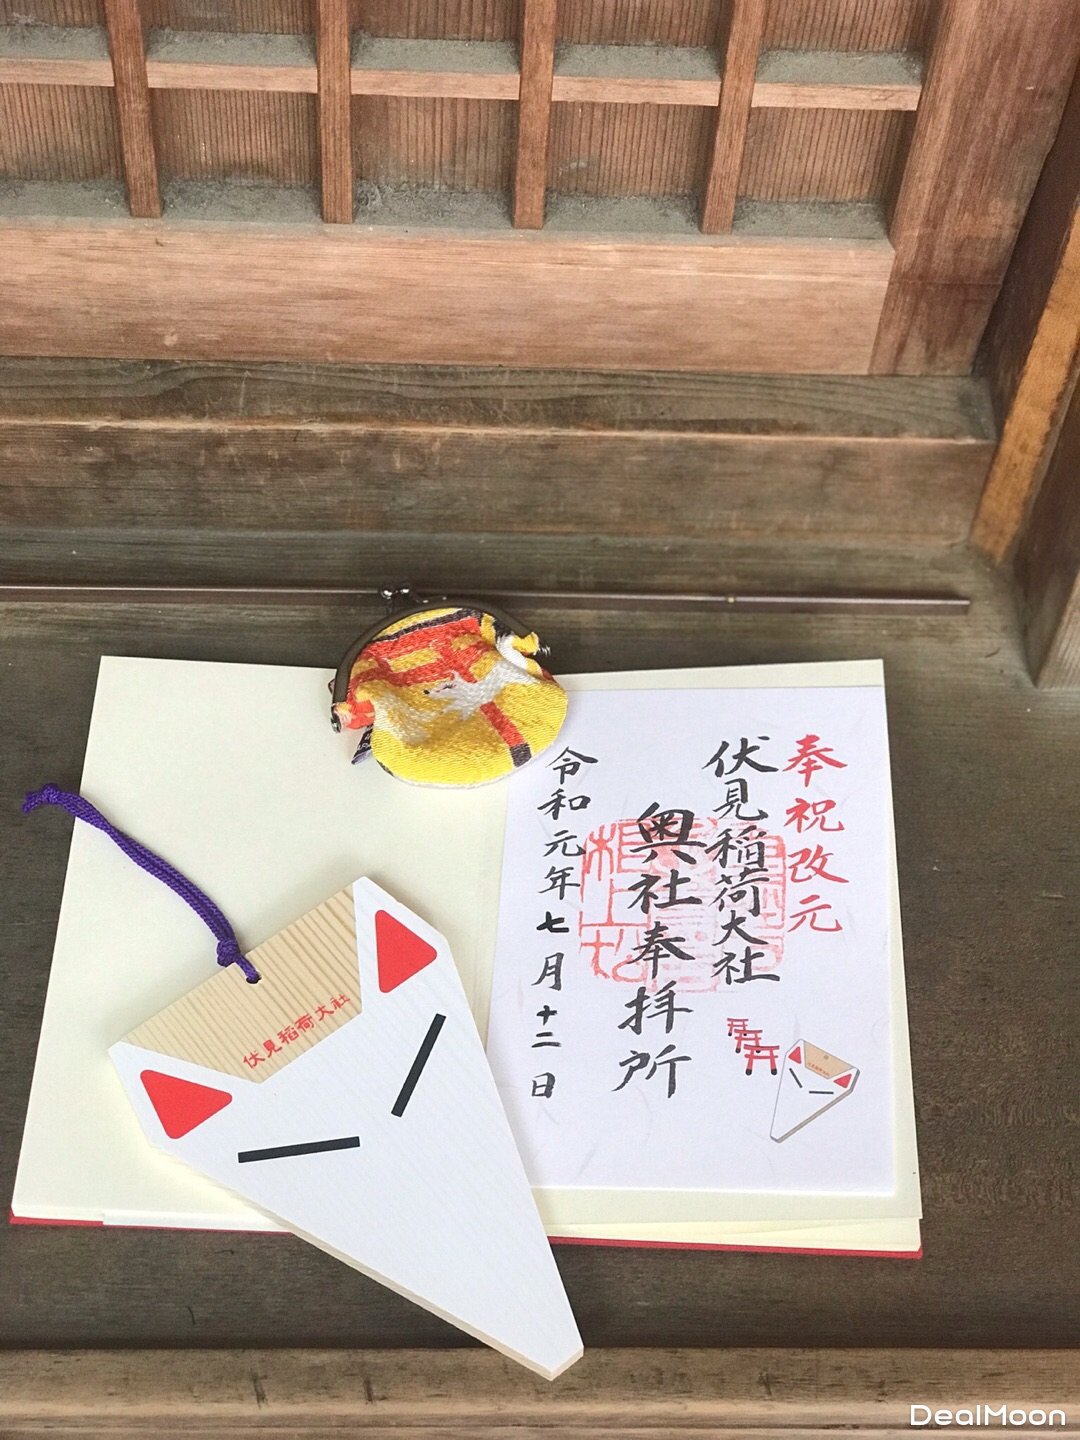 奉祝改元
伏見稲荷大社
奥社奉拝所
令和元年七月十二日
伏見稲荷大社
DealMoon